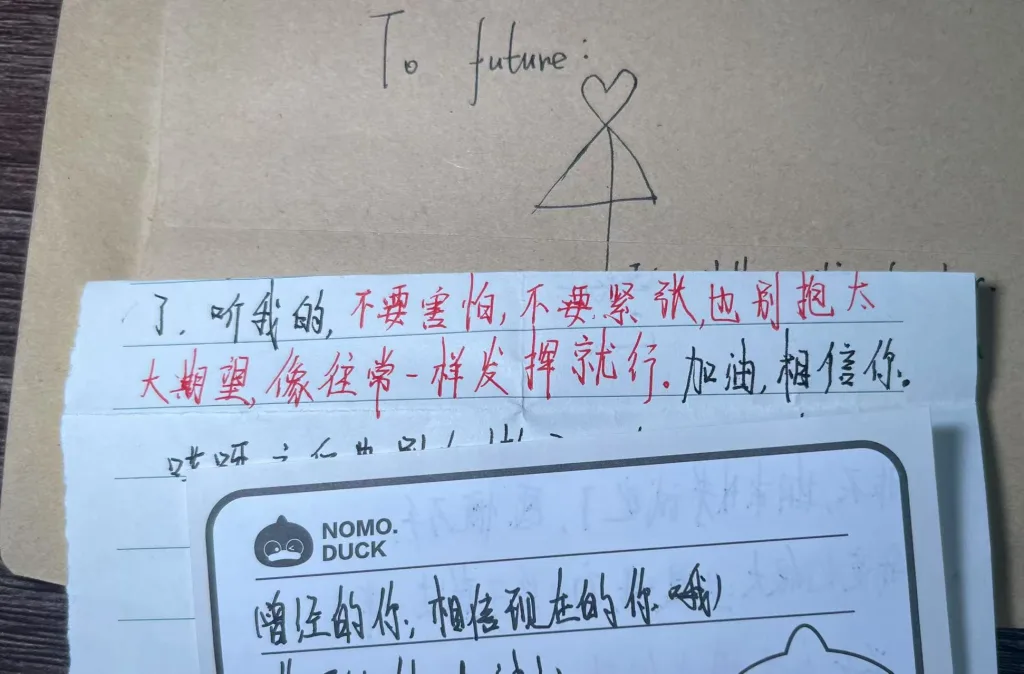 To future:
了,听我的,不要害怕,不要紧张,也别抱太
大期望,像往常一样发挥就行。加油,相信你。
NOMO.
DUCK
(曾经的你,相信现在的你哦)